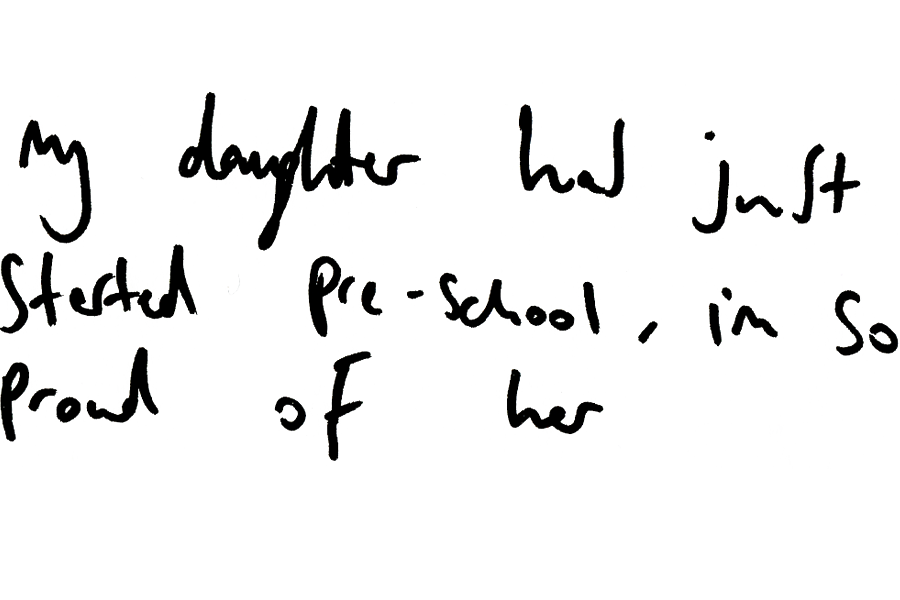 my daughter has just
started pre-school, im so
proud of her